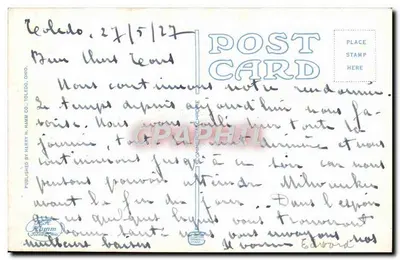 Toledo, 27/5/27
POST CARD
PLACE
STAMP
HERE
Bien chers tous
Nous continuons notre randonnée
Le temps depuis aujourd'hui nous fa-
vorise. Nous avons toute la
journée, et nous
continuerons jusqu'à ce soir car nous
pensons pouvoir atteindre Milwaukee
avant la fin du jour. Dans l'espoir
que ces quelques lignes vous trouveront
en bonne santé nous vous envoyons nos
meilleurs baisers
Edward
PUBLISHED BY HARRY N. HAMM CO., TOLEDO, OHIO.
Delcampe